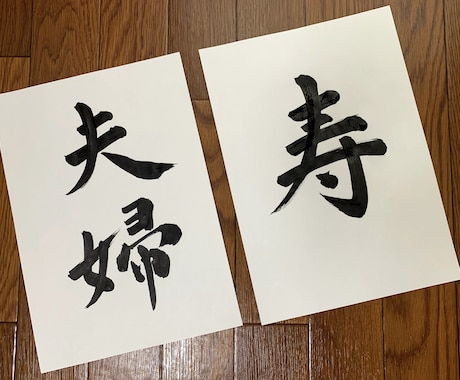 夫婦
寿